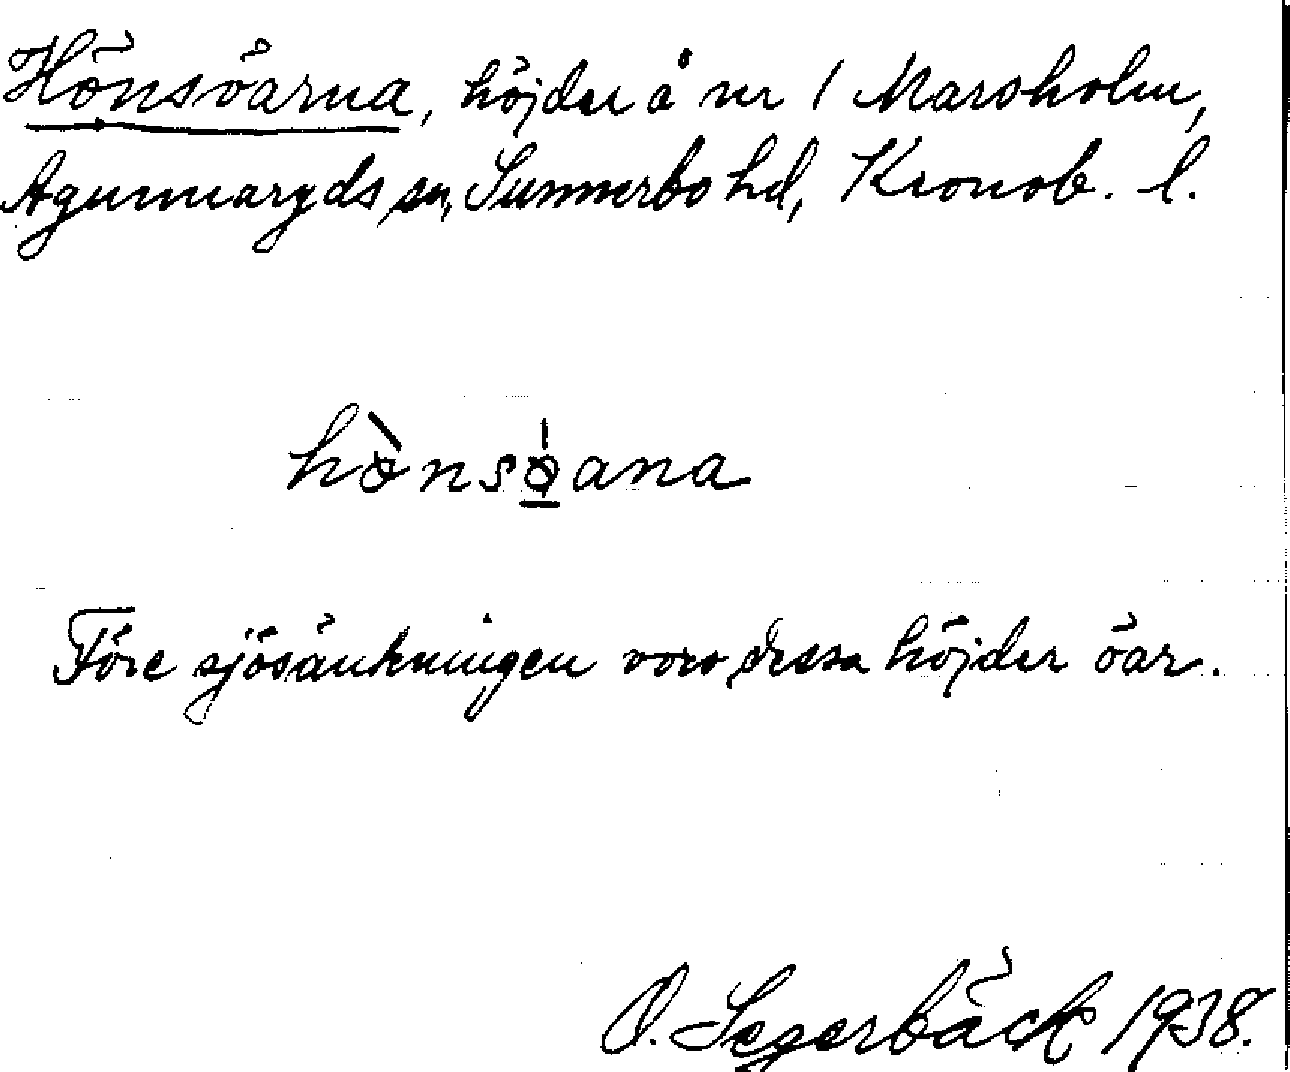 Hönsöarna, höjder å nr 1 Marsholm,
Agunnaryds sn, Sunnerbo hd, Kronob. l.
hònsöana
Före sjösänkningen voro dessa höjder öar.
O. Segerbäck 1938.